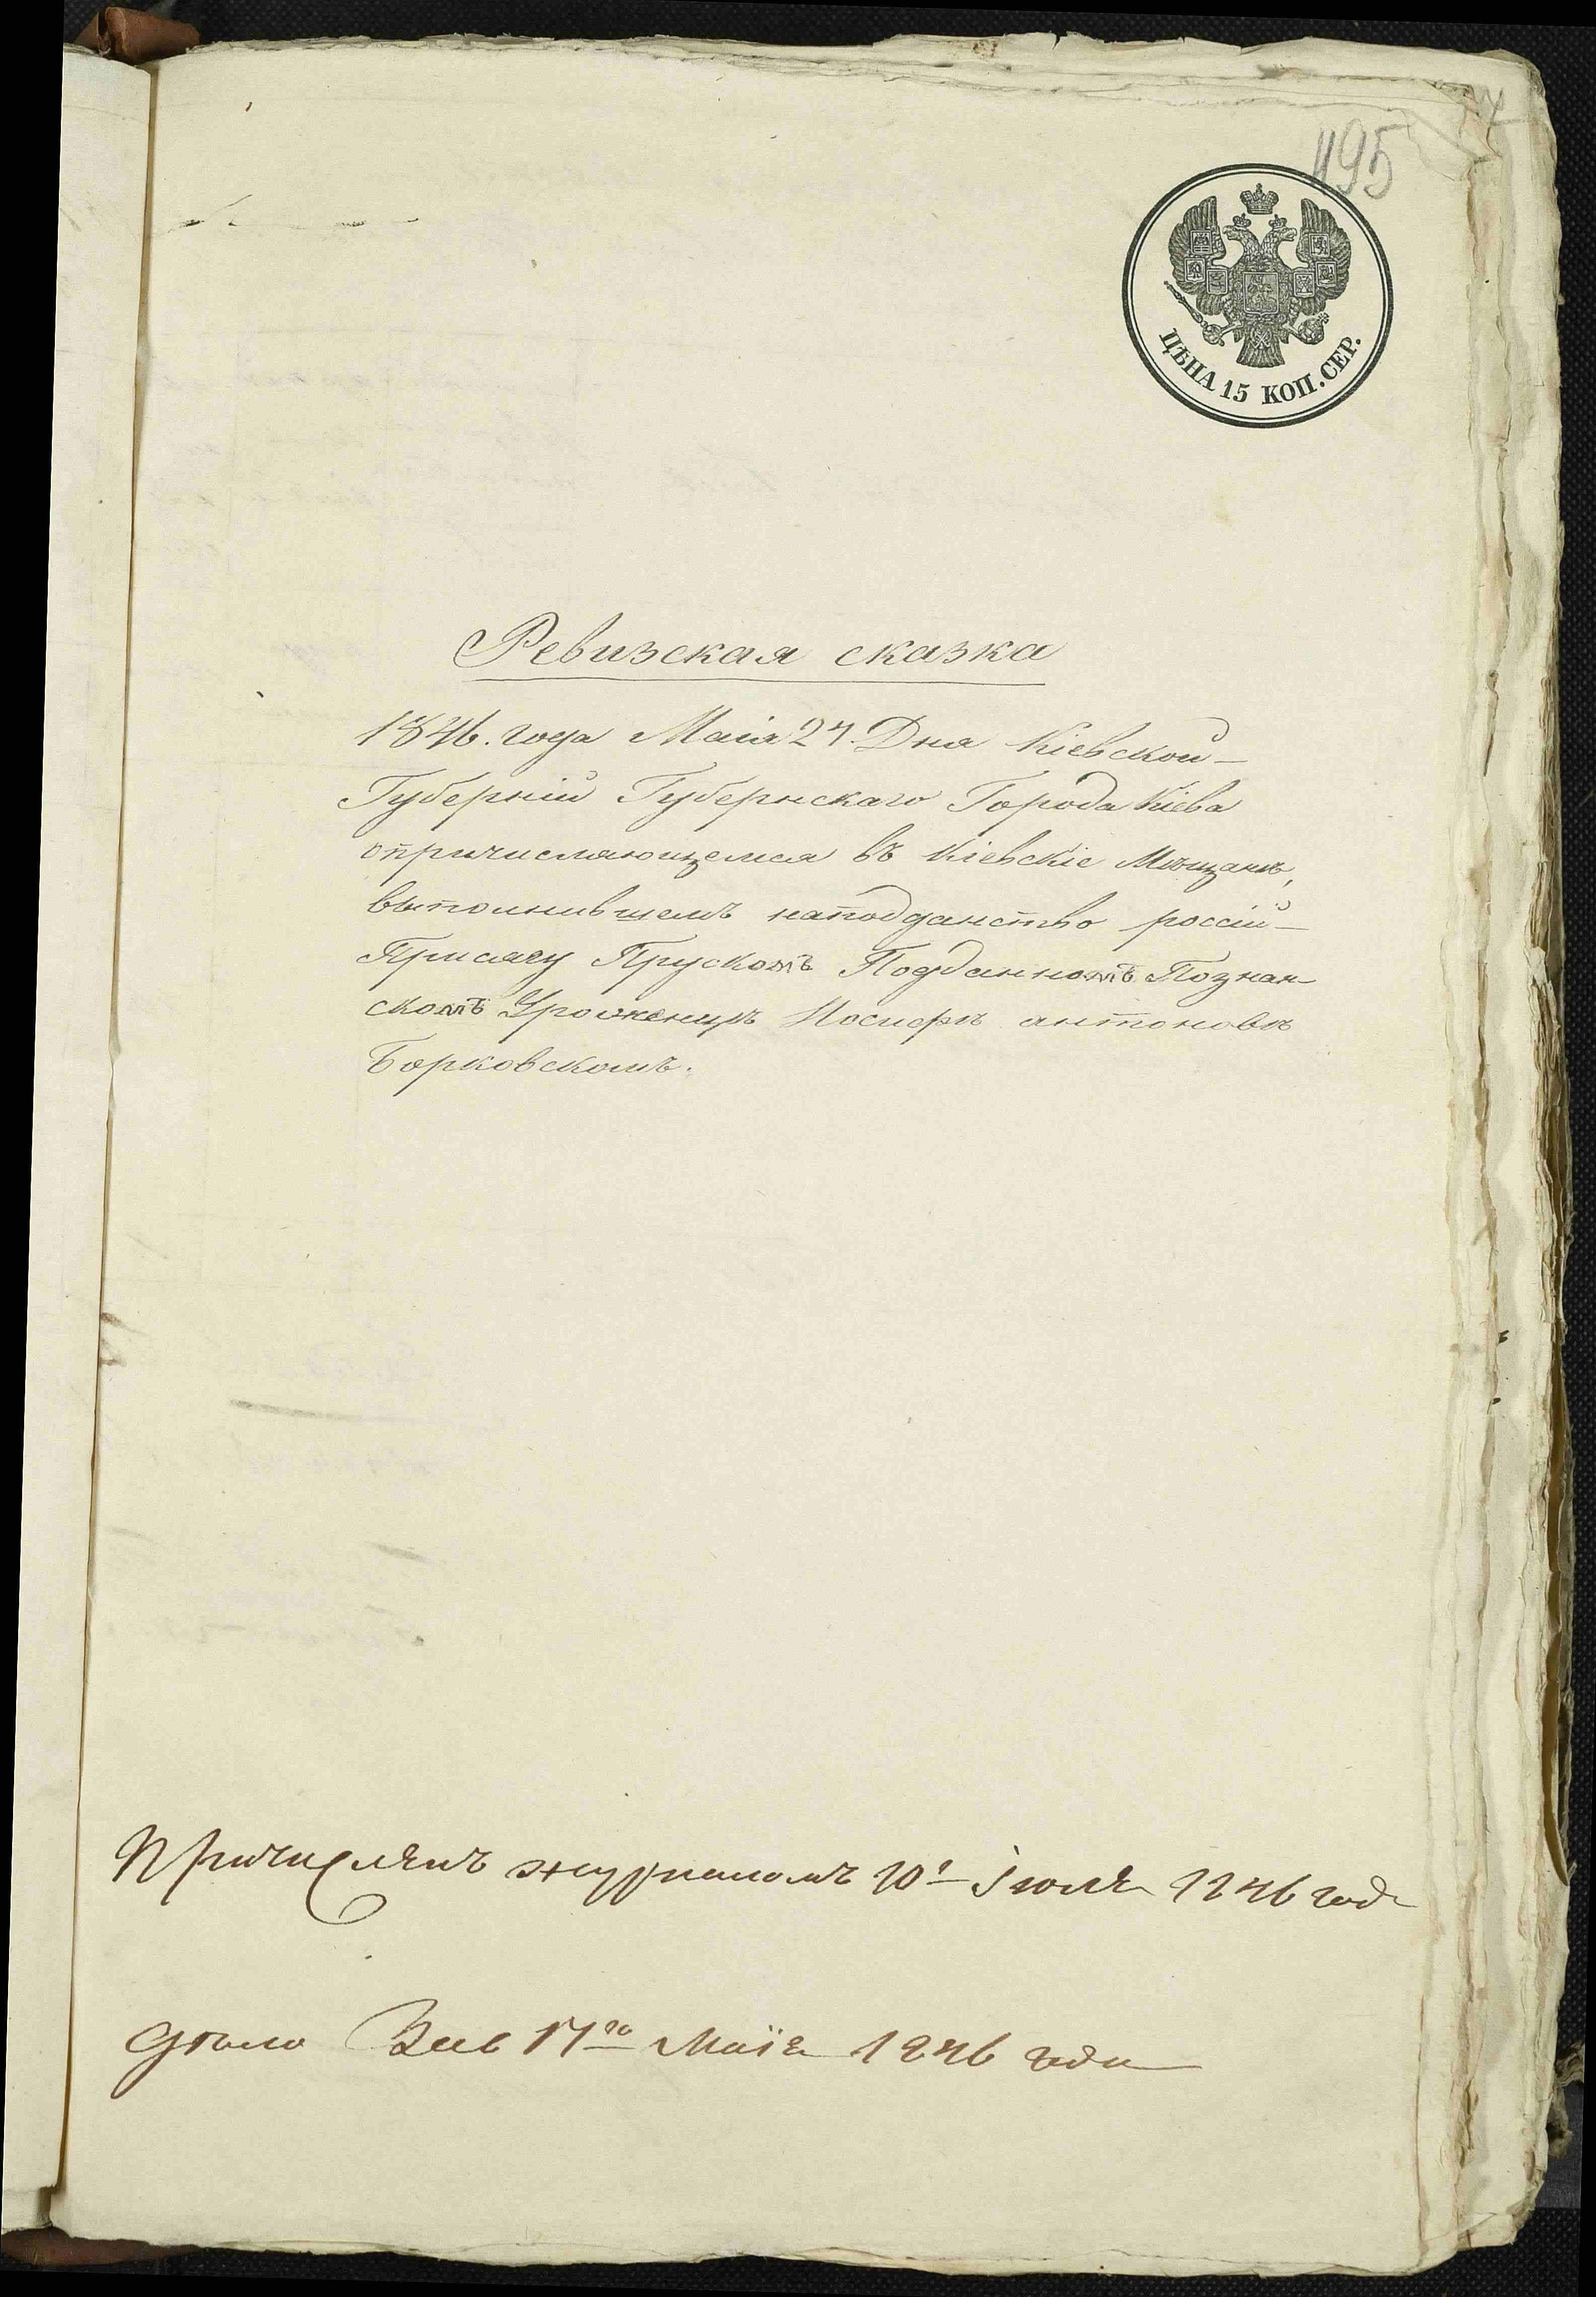 495
ЦѢНА 15 КОП. СЕР.
Ревизская сказка
1846. года Маія 24. Дня Кіевской
Губерніи Губернскаго Города Кіева
опричисляющемся въ Кіевскіе Мѣщане,
выполнившемъ наподданство россій-
Присягу Прускомъ Подданномъ Познан
скомъ Уроженцѣ Иосифѣ антоновѣ
Борковскомъ.
Причисленъ журналомъ 10 іюля 1846 года
дѣло 17го Маія 1846 года